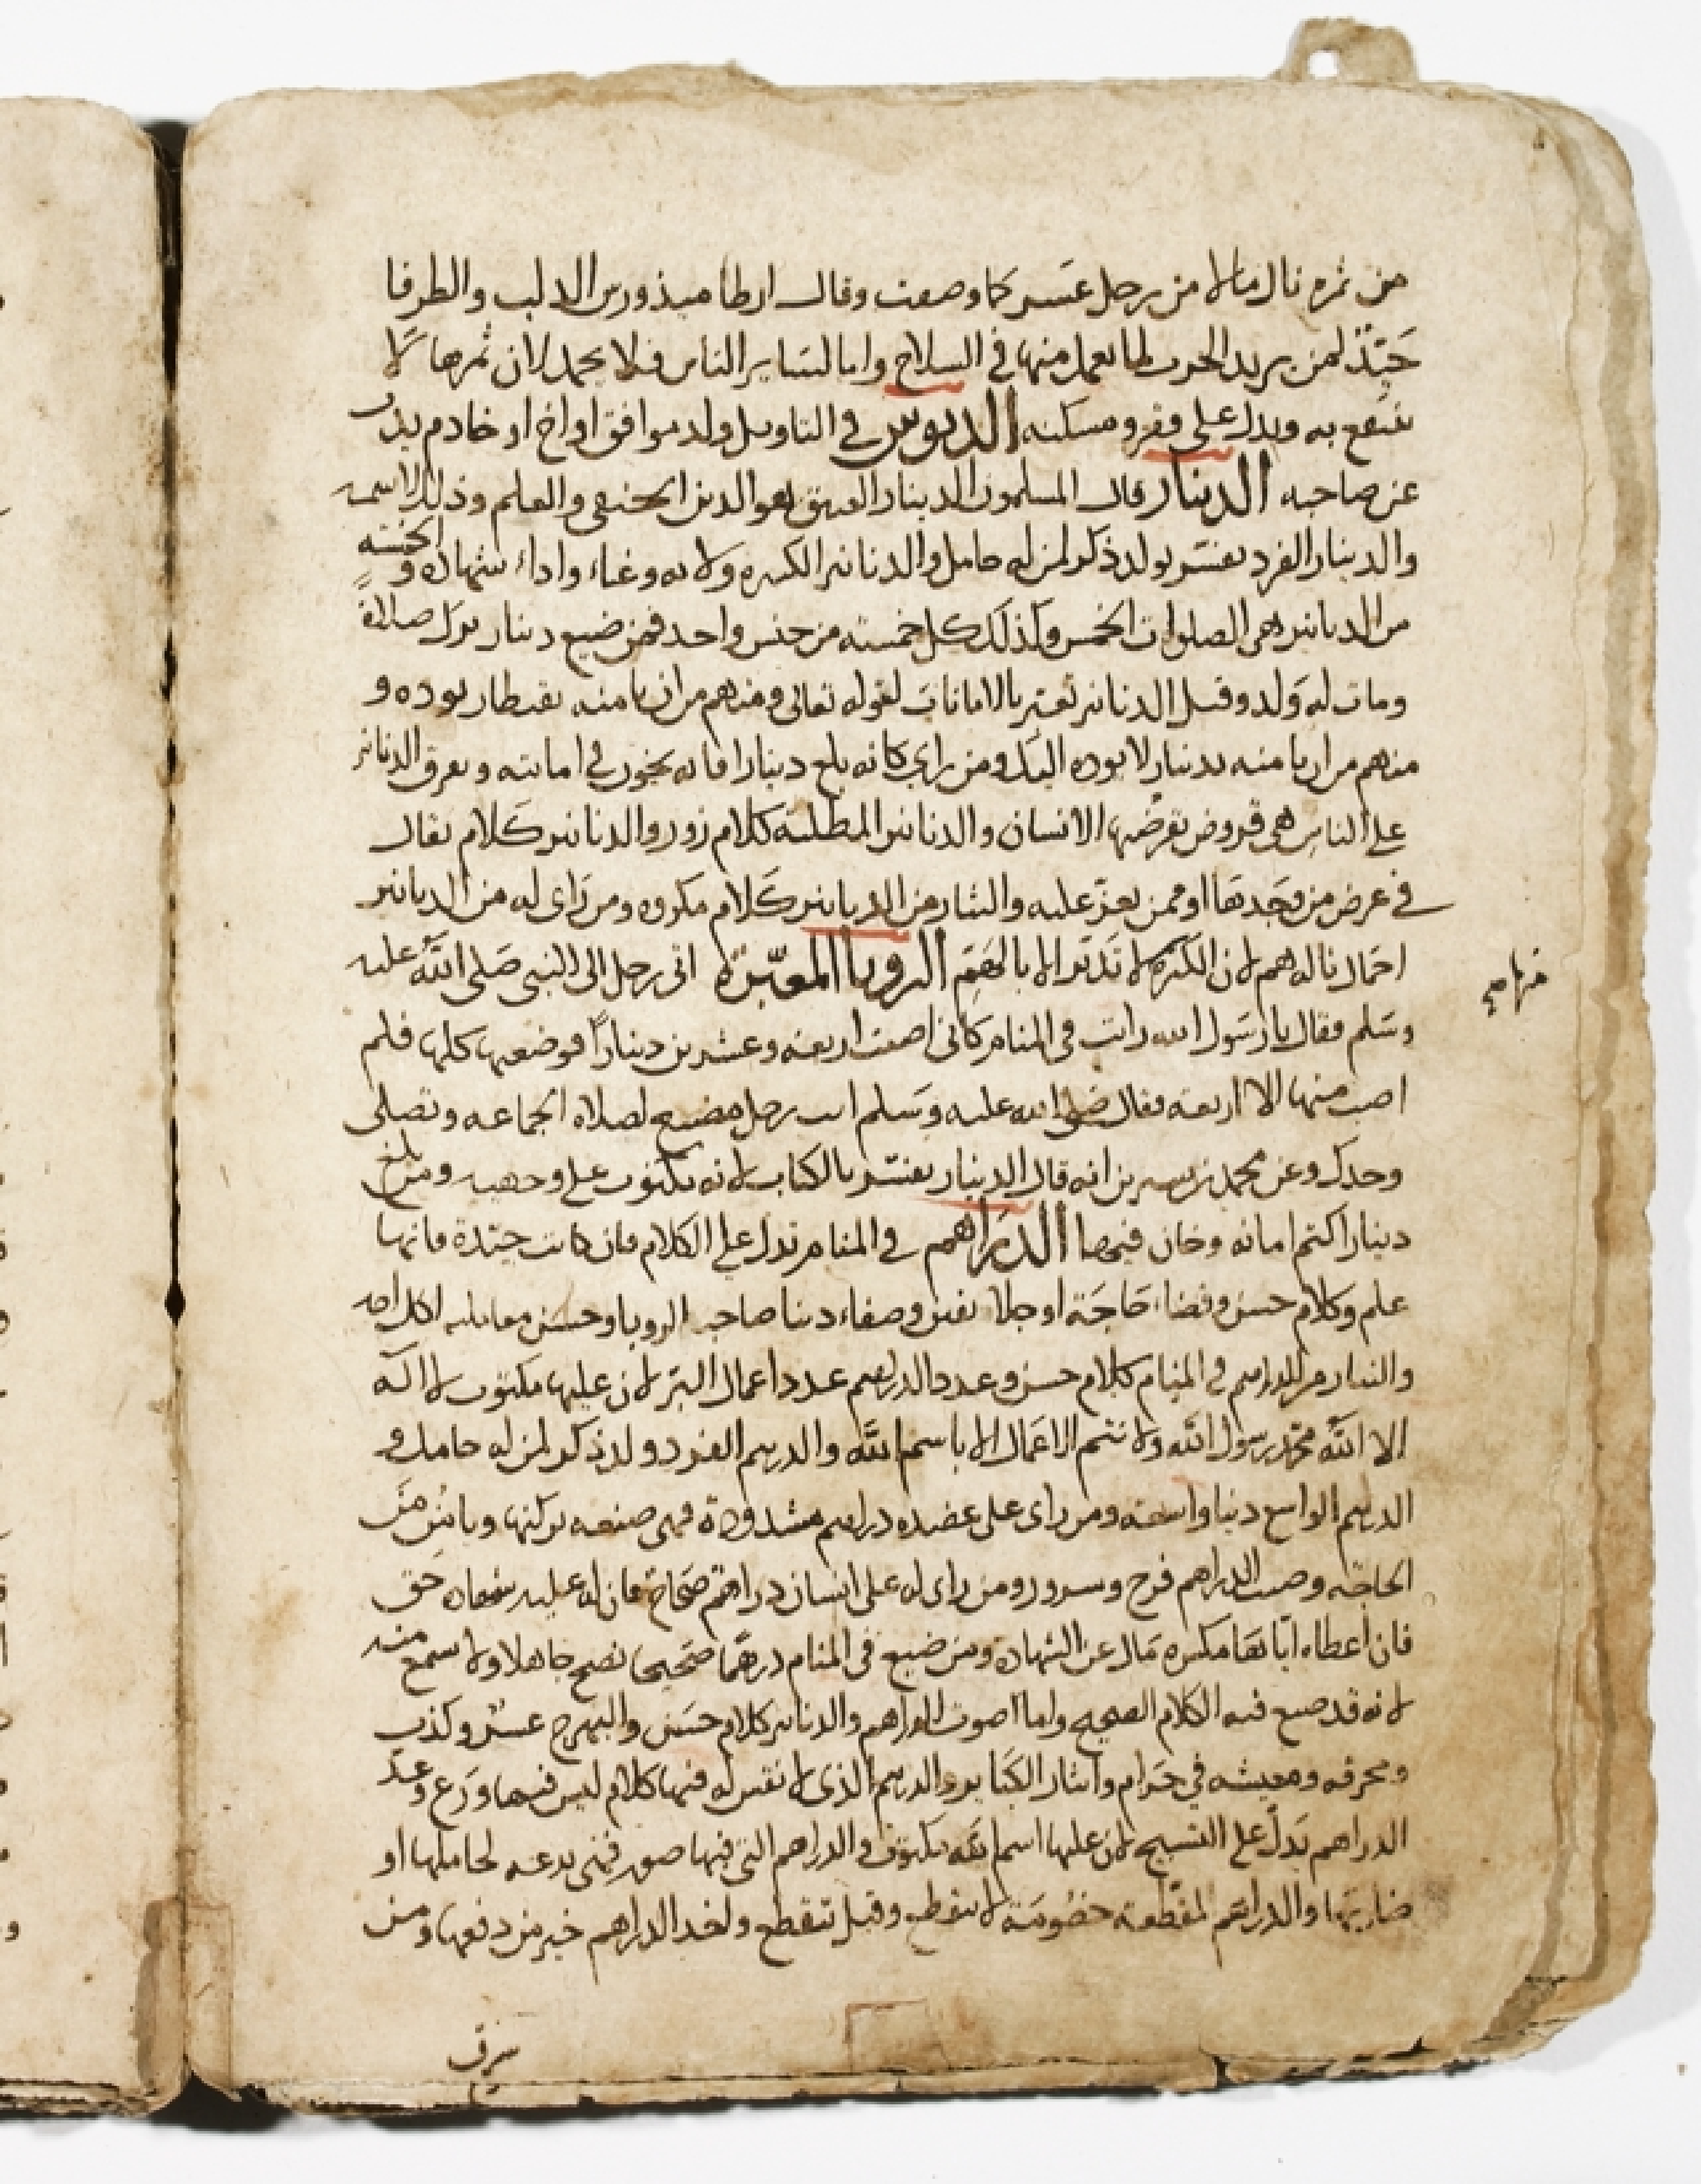 من ثمره نال مالا من رجل عسر كما وصفت وقال ارطاميدورس الدلب والطرفا
جيّد لمن يريد الحرب لما يعمل منها في السلاح واما لساير الناس فلا يحمد لان ثمرها لا
ينتفع به ويدل على وفقر ومسكنه الدبوس في التاويل ولد موافق او اخ او خادم يذب
عن صاحبه الدينار قال المسلمون الدينار العتيق هو الدين الحنيفي والعلم وذلك
والدينار الفرد يفسر بولد ذكر لمن له حامل والدنانير الكثيره ولايه وغناء واداء شهاده والخمسه
من الدنانير هي الصلوات الخمس وكذلك كل خمسه من جنس واحد فمن ضيع دينار ترك صلاة
ومات له ولد وقيل الدنانير تعبر بالامانات لقوله تعالى ومنهم من ان تامنه بقنطار يوده و
منهم من ان تامنه بدينار لا يوده اليك ومن راي كانه بلع دينارا فانه يخون في امانته وتفرق الدنانير
على الناس هي قروض يقرضها الانسان والدنانير المطليه كلام زور والدنانير كلام يقال
في عرض من وجدها او ممن يعز عليه والنثار من الدنانير كلام مكروه ومن راى له من الدنانير
احمال ناله هم لان الكثره لا تدبر الا بالهم الرويا المعبرة اتى رجل الى النبي صلى الله عليه
منها صح
وسلم فقال يا رسول الله رايت في المنام كاني اصبت اربعه وعشرين دينارا فوضعها كلها فلم
اصب منها الا اربعه فقال صلى الله عليه وسلم انت رجل مضيع لصلاه الجماعه وتصلى
وحدك وعن محمد بن سيرين انه قال الدينار يفسر بالكتاب لانه مكتوب على وجهيه ومن بلع
دينارا كتم امانه وخان فيها الدراهم في المنام تدل على الكلام فان كانت جيّدة فانها
علم وكلام حسن وقضاء حاجة او صفاء دنيا صاحب الرويا وحسن معامله لكل احد
والنثار من الدراهم في المنام كلام حسن وعدد الدراهم عدد اعمال البر لان عليها مكتوب لا اله
الا الله محمد رسول الله ولا تتم الاعمال الا باسم الله والدرهم الفرد ولد ذكر لمن له حامل و
الدرهم الواسع دنيا واسعه ومن راى على عضده دراهم مشدودة فهي صنعه
الحاجه الدراهم فرح وسرور ومن راى له على انسان دراهم صحاح فان له عليه شهاده حق
فان اعطاه اياها مكسره مال عن الشهاده ومن ضيع في المنام درهما صحيحا نصح جاهلا ولا سمع منه
لانه قد ضيع فيه الكلام الصحيح واما اصوت الدراهم والدنانير كلام حسن والبهرج غش وكذب
ومحرفه ومعيشه في حرام وايثار الكباير والدرهم الذى لا نقش له فيها كلام ليس فيها ورع وعد
الدراهم يدل على التسبيح لان عليها اسم الله مكتوب والدراهم التي فيها صور فهي بدعه لحاملها او
ضاربها والدراهم المقطعه خصومة لا تنقطع وقيل تنقطع واخذ الدراهم خير من دفعها ومن
سرق